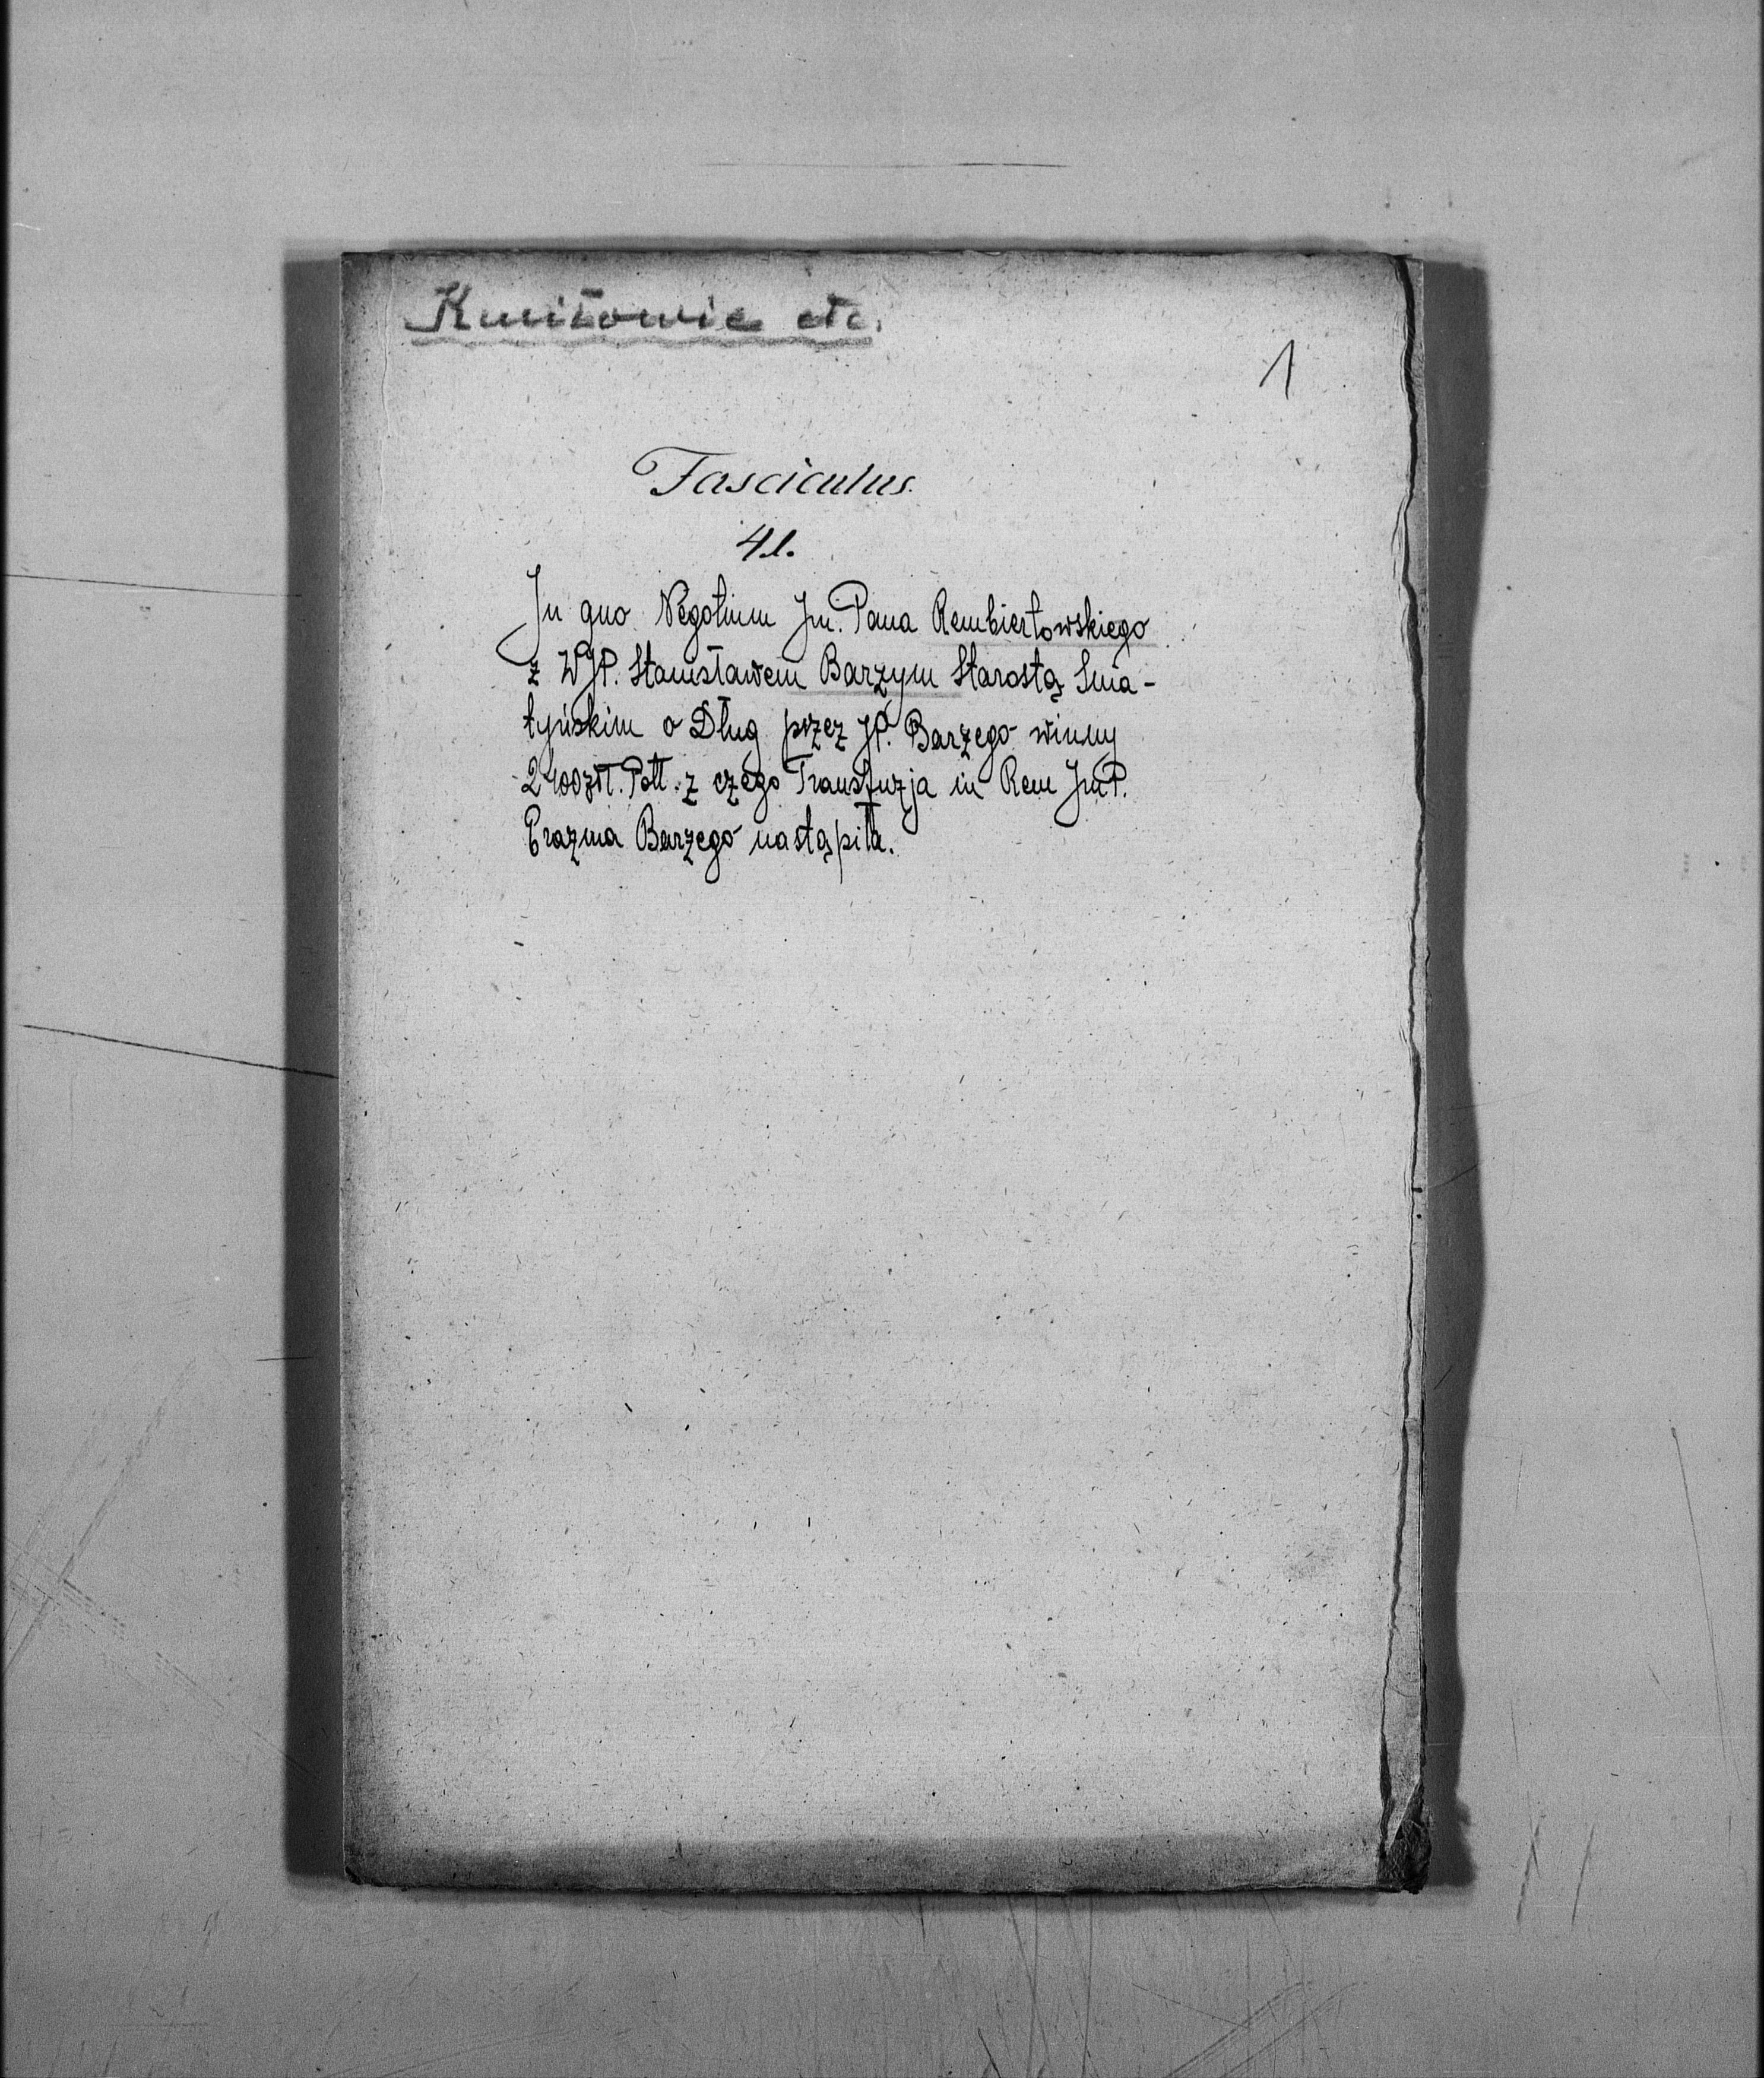 Kniżowie etc.
1
Fasciculus.
41.
In quo Negotium Jm. Pana Rembiertowskiego
z WJP. Stanisławem Barzym Starostą Snia-
tyńskim o Dług przez JP. Barzego winny
2400 zł. Poll. z czego Transfuzja in Rem JmP.
Erazma Barzego nastąpiła.